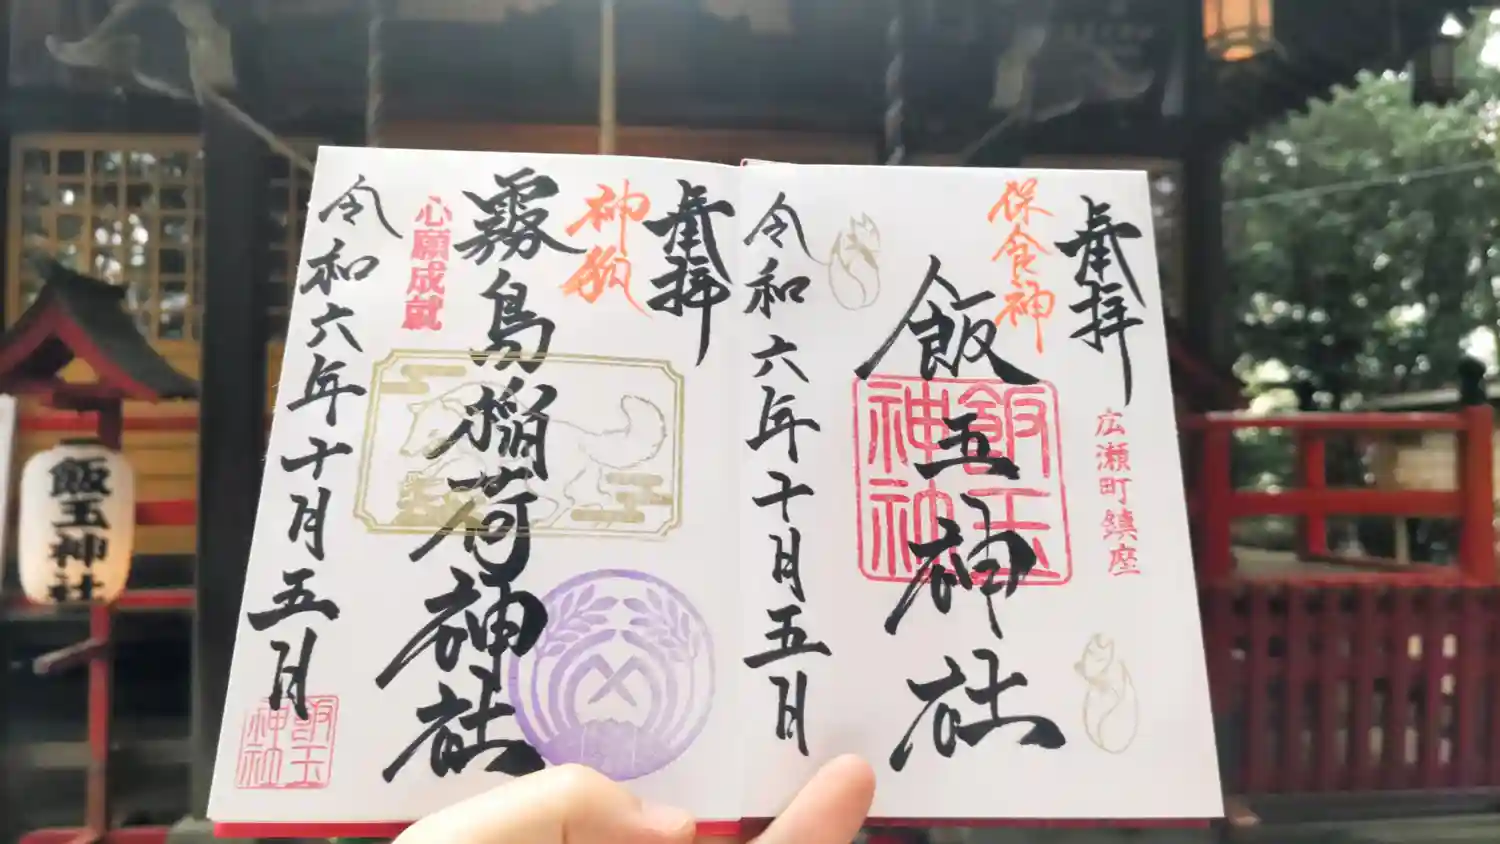 奉拝
保食神
広瀬町鎮座
飯玉神社
飯玉
神社
令和六年十月五日
奉拝
神狐
霧島稲荷神社
心願成就
令和六年十月五日
飯玉
神社
飯玉神社